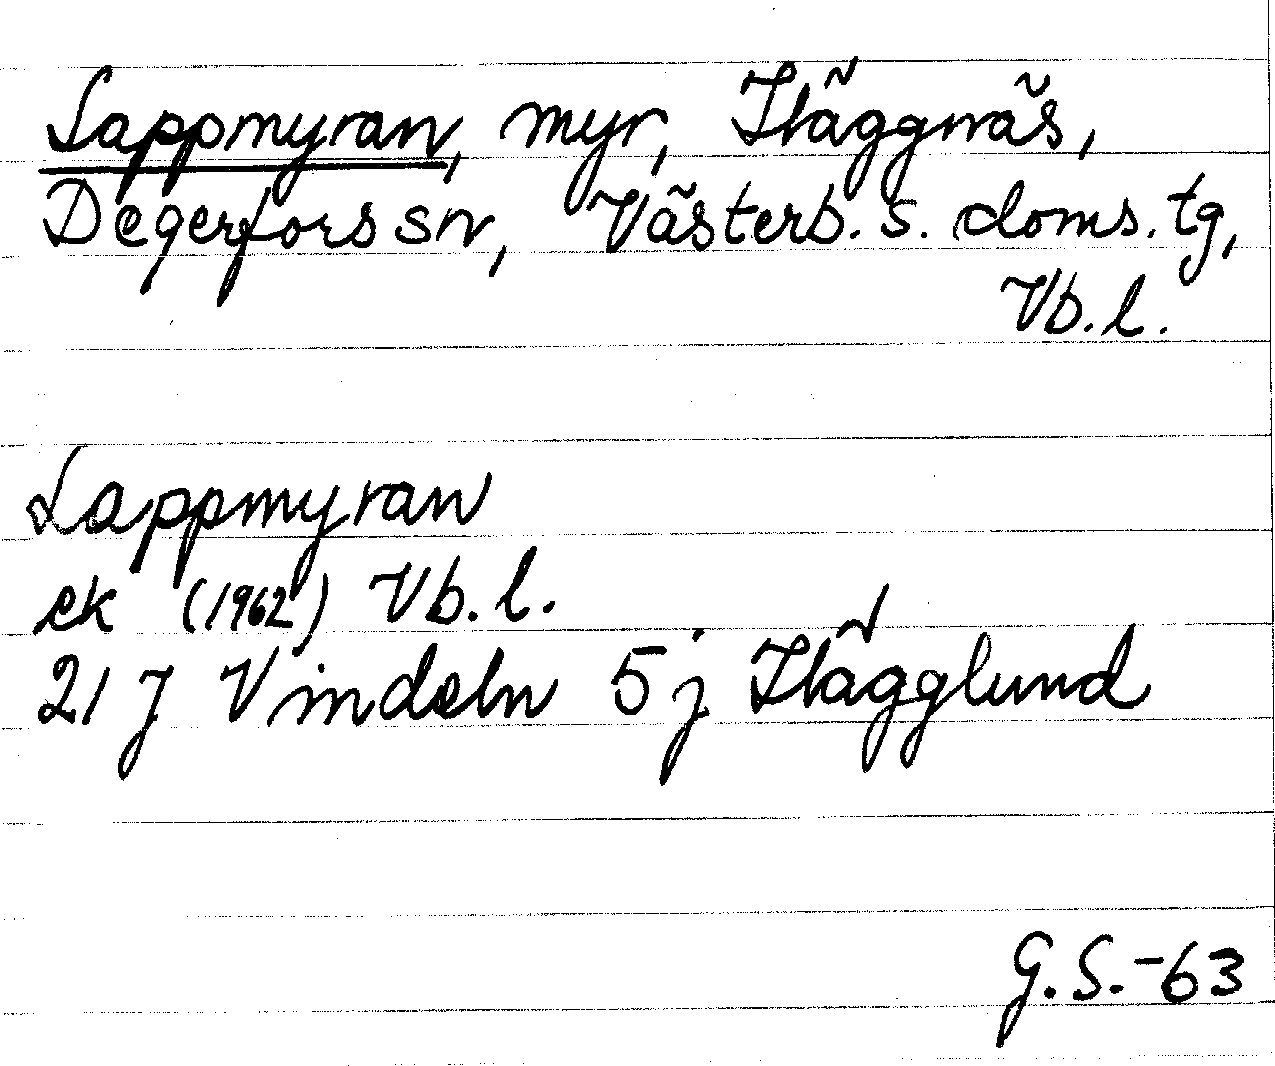 Lappmyran, myr, Häggnäs,
Degerfors sn, Västerb. s. doms. tg,
Vb. l.
Lappmyran
ek (1962) Vb. l.
21 J Vindeln 5 j Hägglund
G. S. -63